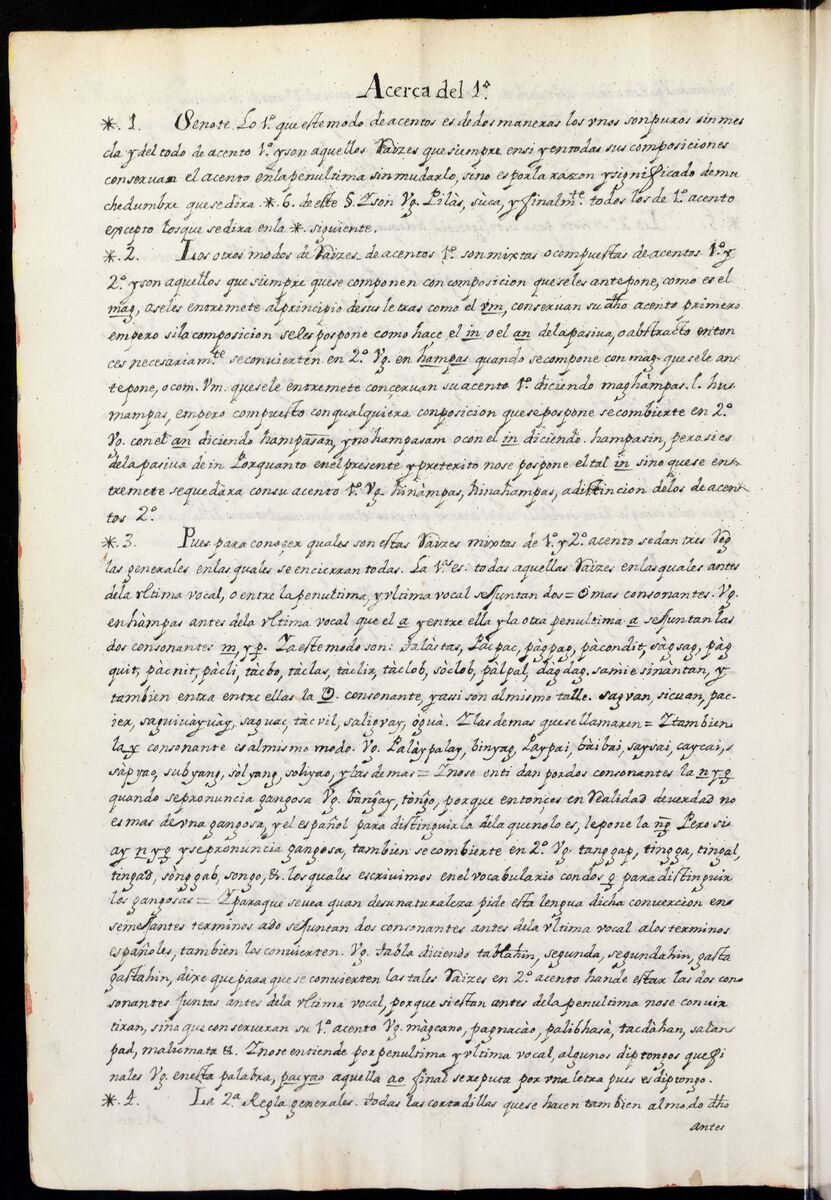 Acerca del 1.º
*. 1. Senote Lo 1º. que este modo de acentos es de dos maneras los vnos son puros sin mes
cla y del todo de acento 1º. y son aquellos Raizes que siempre en si y en todas sus composiciones
conseruan el acento en la penultima sin mudarlo, sino es por la raxon y significado de mu
chedumbre que se dira *. 6. de este §. Z son Vg. Pilàs, sùca, y finalmte. todos los de 1º. acento
excepto los que se dira en la *. siguiente.
*. 2. Los otros modos de Raizes de acentos 1º. son mixtas o compuestas de acentos 1º. y
2º. y son aquellos que siempre que se componen con composicion que se les antepone, como es el
mag, o se les entremete al principio de sus letras como el vm, conseruan su dho acento primero
empero si la composicion se les pospone como hace el in o el an de la pasiva, o abstracto enton
ces necesariamte. se convierten en 2º. Vg. en hampas quando se compone con mag que se le an-
tepone, o com. Vm. que se le entremete conçervan su acento 1º. diciendo maghàmpas. l. hus-
mampas, empero compuesto con qualquiera conposicion que se pospone se combierte en 2º.
Vg. con el an diciendo hampasan, y no hampasam o con el in diciendo. hampasin, pero si es
de la pasiva de in Porquanto en el presente y preterito no se pospone el tal in sino que se en-
tremete se quedara con su acento 1º. Vg. hinàmpas, hinahampas, a distincion de los de acen-
tos 2º.
*. 3. Pues para conoçer quales son estas Raizes mixtas de 1º. y 2º. acento se dan tres Reg
las generales en las quales se encierran todas. La 1ª. es: todas aquellas Raizes en las quales antes
de la vltima vocal, o entre la penultima, y vltima vocal se juntan dos = O mas consonantes. Vg.
en hàmpas antes de la vltima vocal que el a y entre ella y la otra penultima a se juntan las
dos consonantes m, y p. Z a este modo son: Talàstas, Pàcpac, pàgpag, pàcondit, sàgsag, pàg
quit, pàcnit, pàcli, tàcbo, tàclas, tàclix, tàclob, sòclob, pàlpal, dàgdag. samie sinàntan, y
tambien entra entre ellas la V. consonante, y assi son al mismo talle. sagvan, sicuan, pac-
ier, saguivayuày, saguac, tàcvil, saligvay, òguà. Z las demas que se llamaren = Z tambien
la y consonante es al mismo modo. Vg. Palàypalay, binyag, Paypai, bàibai, saysai, caycai, s
sàpyag, subyang, sòlyang, soliyao, y las demas = Z no se enti dan por dos consonantes la n y g
quando se pronuncia gangosa Vg. bànĝay, tònĝo, porque entonçes en Realidad de verdad no
es mas de vna gangosa, y el español para distinguirla de la que no lo es, le pone la ng̃ Pero si
ay n y g y se pronuncia gangosa, tambien se combierte en 2º. Vg. tanggap, tingga, tingal,
tingad, sònggab, songo, &. los quales escrivimos en el vocabulario con dos g para distinguir
los gangosas = Z para que se vea quan de su naturaleza pide esta lengua dicha converçion en
semejantes terminos ado se juntan dos consonantes antes de la vltima vocal a los terminos
españoles, tambien los convierten. Vg. Tabla diciendo tablahin, segunda, segundahin, gasta
gastahin, dixe que para que se convierten las tales Raizes en 2º. acento han de estar las dos con
sonantes juntas antes de la vltima vocal, porque si estan antes de la penultima no se convir
tiran, sino que conserueran su 1º. acento Vg. màgcano, pagnacào, palibhasà, tacdàhan, salàn
pad, maliumata &. Z no se entiende por penultima y vltima vocal, algunos diptongos que fi
nales Vg. en esta palabra, pacyao aquella ao final se reputa por vna letra pues es diptongo.
*. 4. La 2ª. Regla generales. Todas las cortadillas que se hacen tambien al modo dho
antes